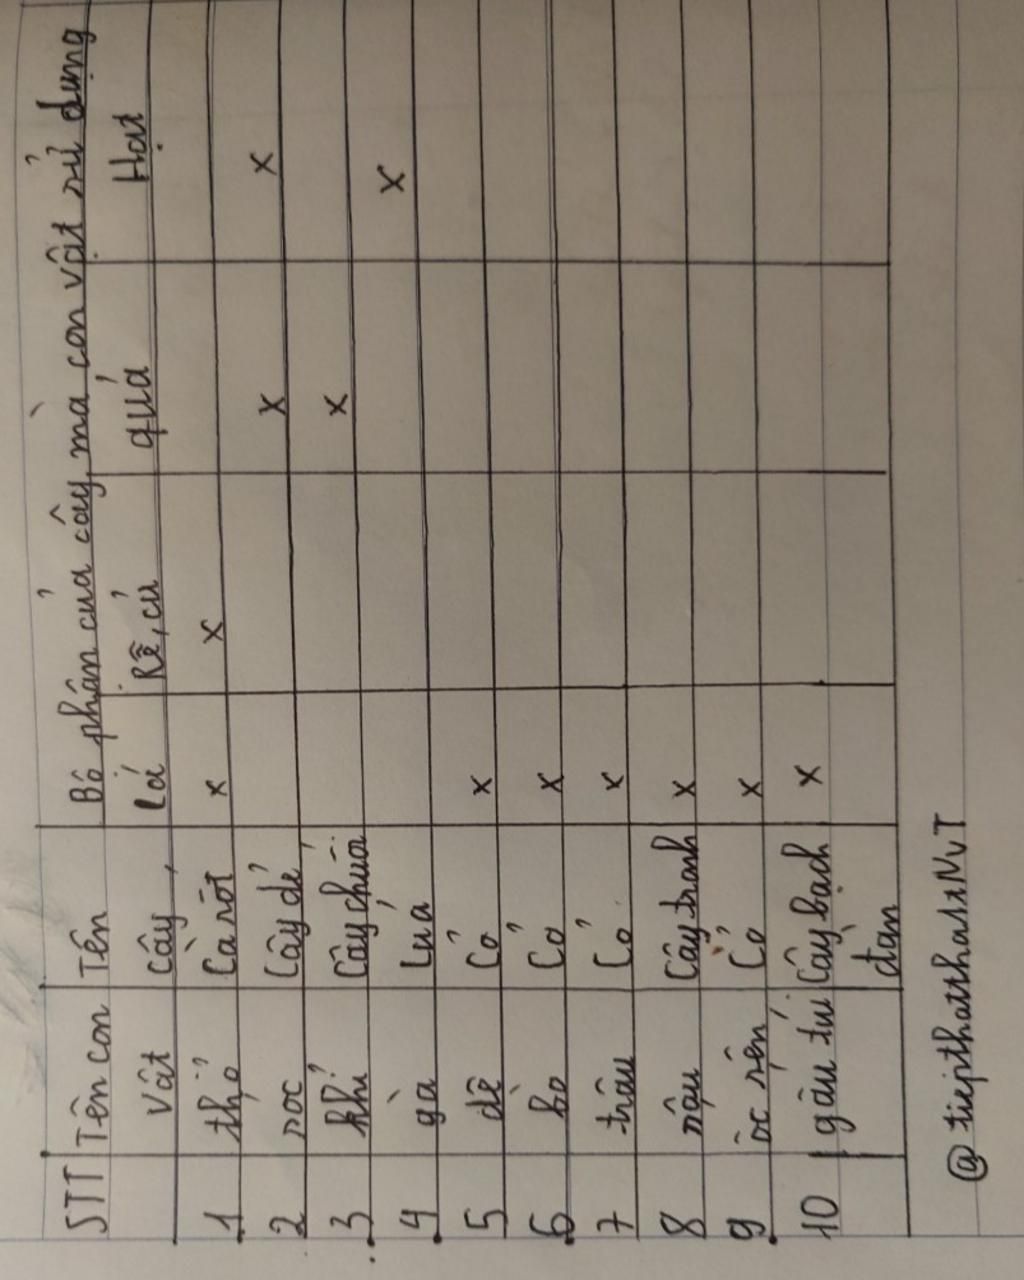 STT Tên con Tên Bộ phận của cây mà con vật sử dụng
vật cây Lá Rễ, củ quả Hạt
1 thỏ Cà rốt x x
2 sóc Cây dẻ x x
3 khỉ Cây chuối x
4 gà Lúa x
5 dê Cỏ x
6 bò Cỏ x
7 trâu Cỏ x
8 sâu Cây tranh x
9 ốc sên Cỏ x
10 gấu túi Cây bạch x
đàn